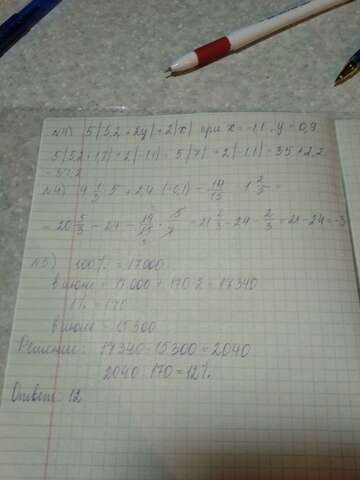 №4) 5|5,2 + 2y| + 2|x| при x = -1,1, y = 0,9
5|5,2 + 1,8| + 2|-1,1| = 5|7| + 2|-1,1| = 35 + 2,2
= 37,2
№4) 4 1/3 · 5 + 24 · (-0,1) - 14/15 : 1 2/5 =
= 20 5/3 - 24 - 14/15 · 5/7 = 21 2/3 - 24 - 2/3 = 21 - 24 = -3
№5) 100% = 17000
в июне = 17000 + 170 · 2 = 17340
1% = 170
в июле = 15300
Решение: 17340 - 15300 = 2040
2040 : 170 = 12%
Ответ: 12